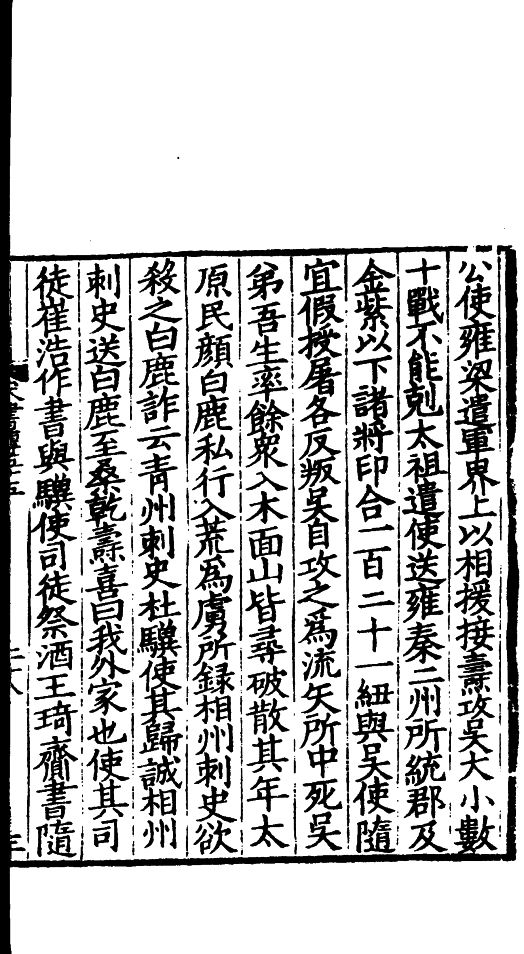 公使雍梁遣軍界上以相援接燾攻吴大小數
十戰不能剋太祖遣使送雍秦二州所統郡及
金紫以下諸將印合一百二十一紐與吴使隨
宜假授屠各反叛吴自攻之爲流矢所中死吴
弟吾生率餘衆入木面山皆尋破散其年太
原民顔白鹿私行入荒爲虜所録相州刺史欲
殺之白鹿詐云青州刺史杜驥使其歸誠相州
刺史送白鹿至桑乾燾喜曰我外家也使其司
徒崔浩作書與驥使司徒祭酒王琦齎書隨